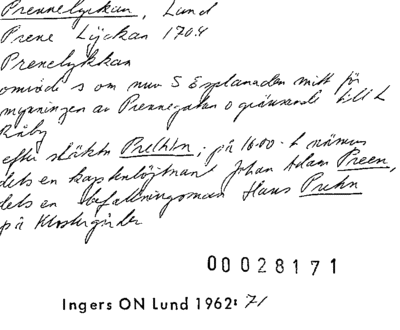 Prennelyckan, Lund
Prene Lyckan 1704
Prenelykkan
område s om nuv S Esplanaden mitt för
mynningen av Prennegatan o gränsande till L
Råby
efter släkten Prehn; på 1600-t nämnes
dels en kaptenlöjtnant Johan Adam Preen,
dels en befallningsman Hans Prehn
på Klostergården
00028171
Ingers ON Lund 1962: 71